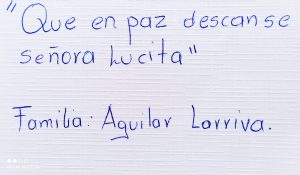 "Que en paz descanse
señora Lucita"
Familia: Aguilar Larriva.